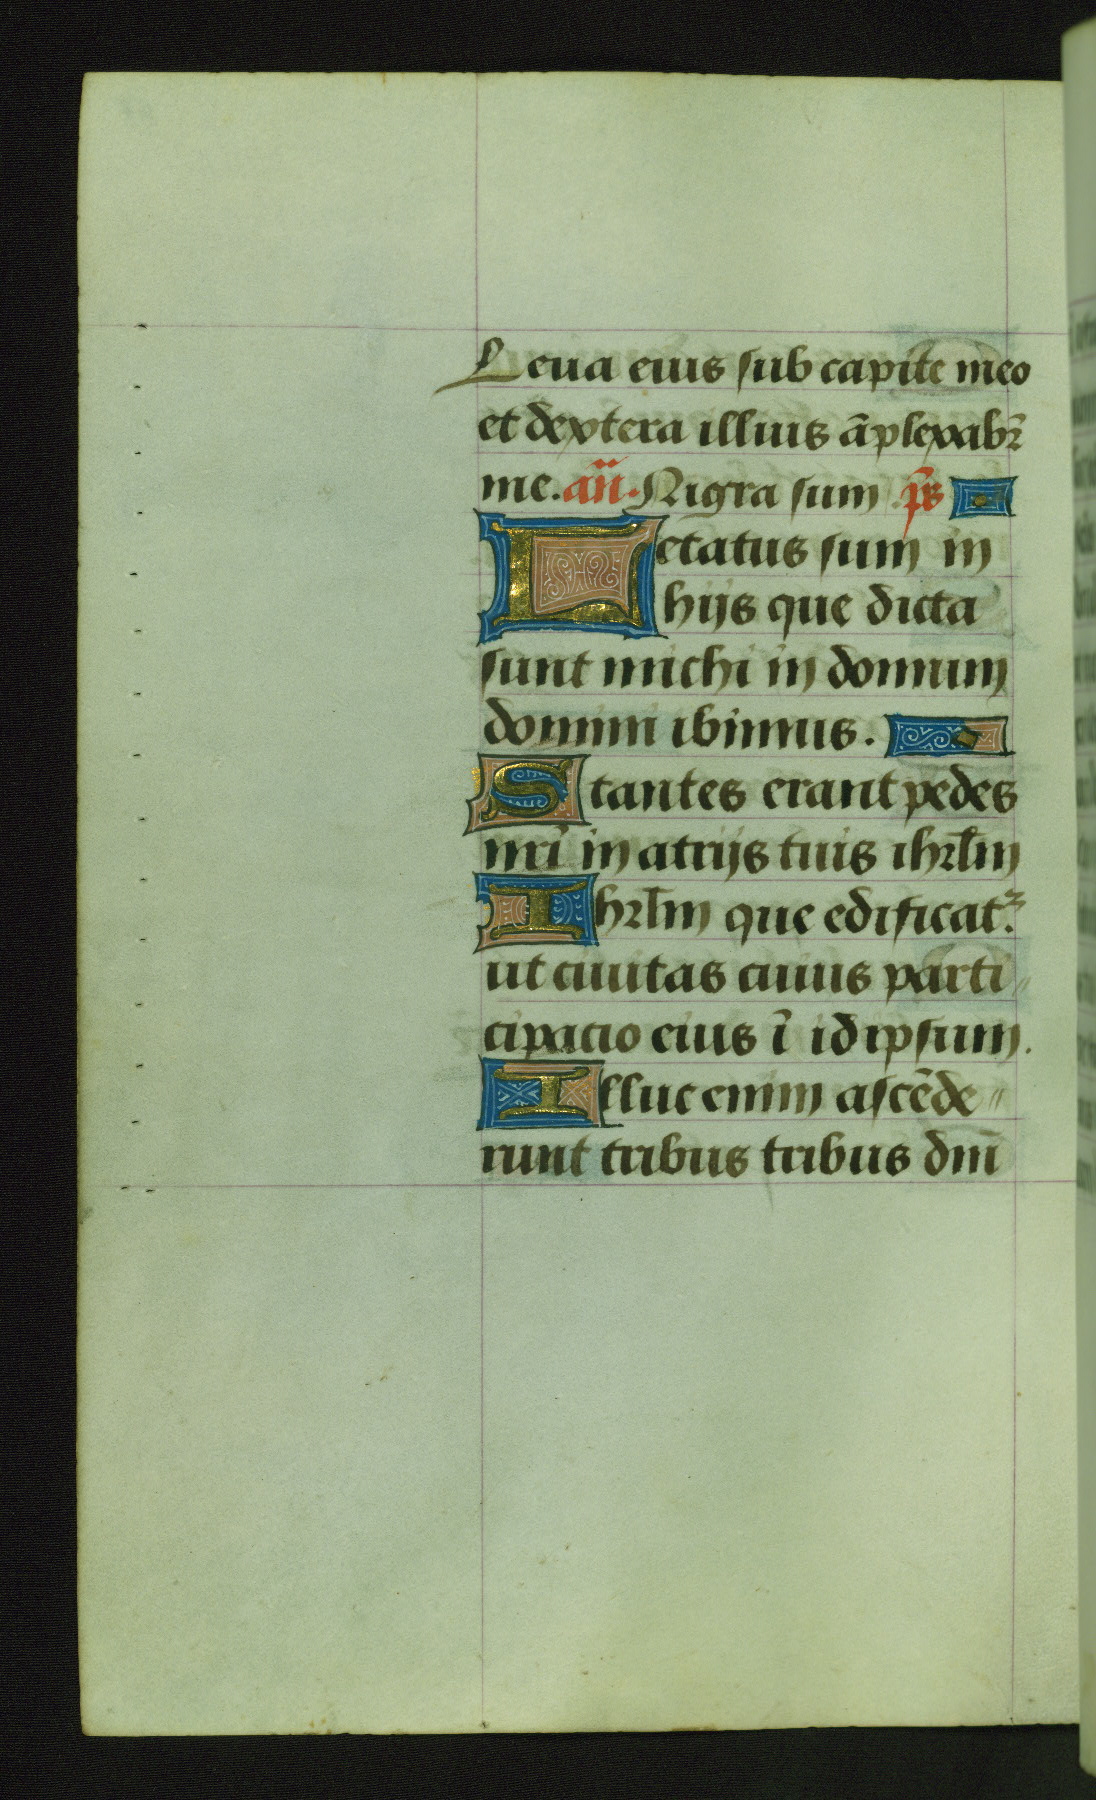 Leua eius sub capite meo
et dextera illius āplexabr̄
me. añ. Nigra sum. ps̄
Letatus sum in
hijs que dicta
sunt michi in domum
domini ibimus.
Stantes erant pedes
nrī in atrijs tuis ihrl̄m
Ihrl̄m que edificat᷑.
ut ciuitas cuius parti
cipacio eius ī id ipsum.
Illuc enim ascēde〃
runt tribus tribus dnī